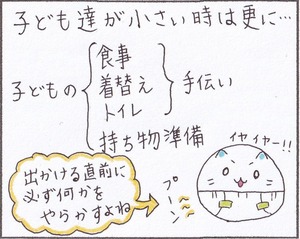 子ども達が小さい時は更に…
子どもの
食事
着替え
トイレ
手伝い
持ち物準備
イヤイヤー!!
出かける直前に
必ず何かを
やらかすよね
プーン